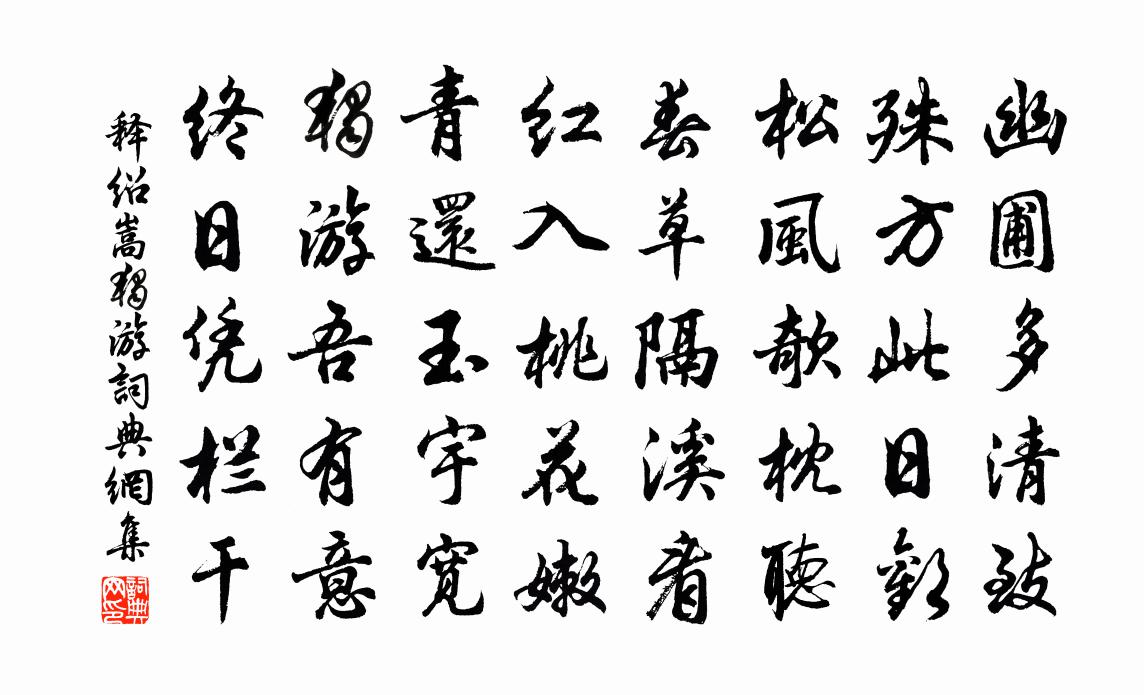 幽圃多清致
殊方此日歡
松風欹枕聽
春草隔溪看
红入桃花嫩
青還玉宇寬
獨游吾有意
终日凭栏干
释绍嵩獨游詞典網集
詞典网印